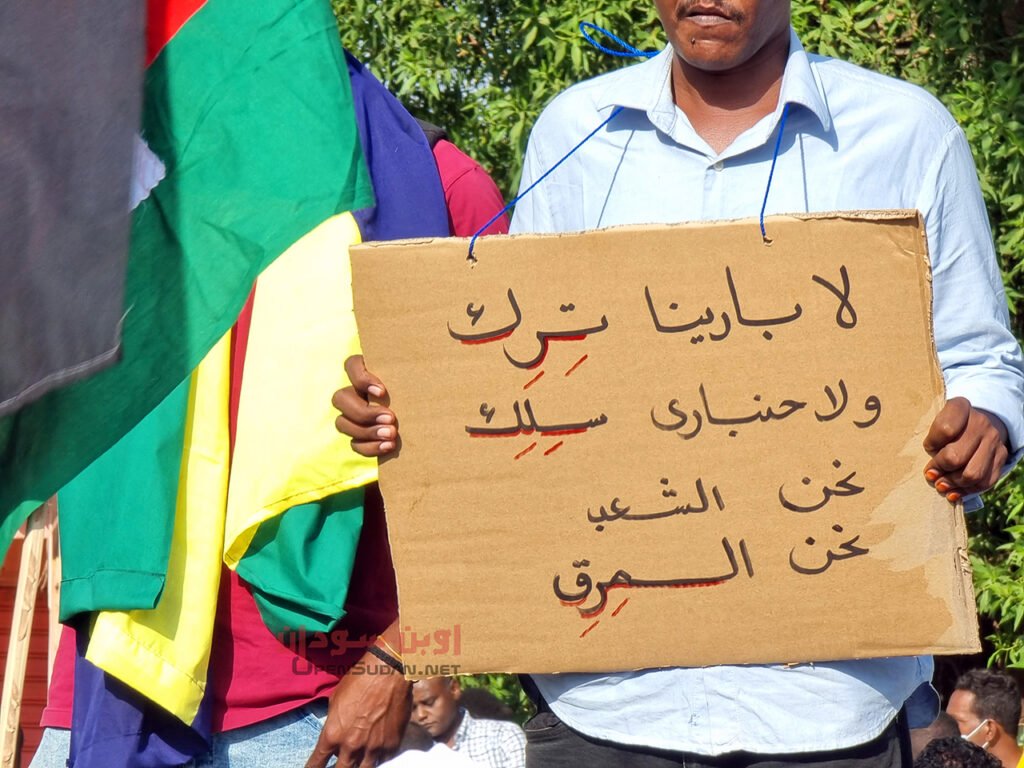 لا بارينا تِرِك
ولا حنبارى سِلِك
نحن الشعب
نحن المِرِق
اوبن سودان
OPENSUDAN.NET